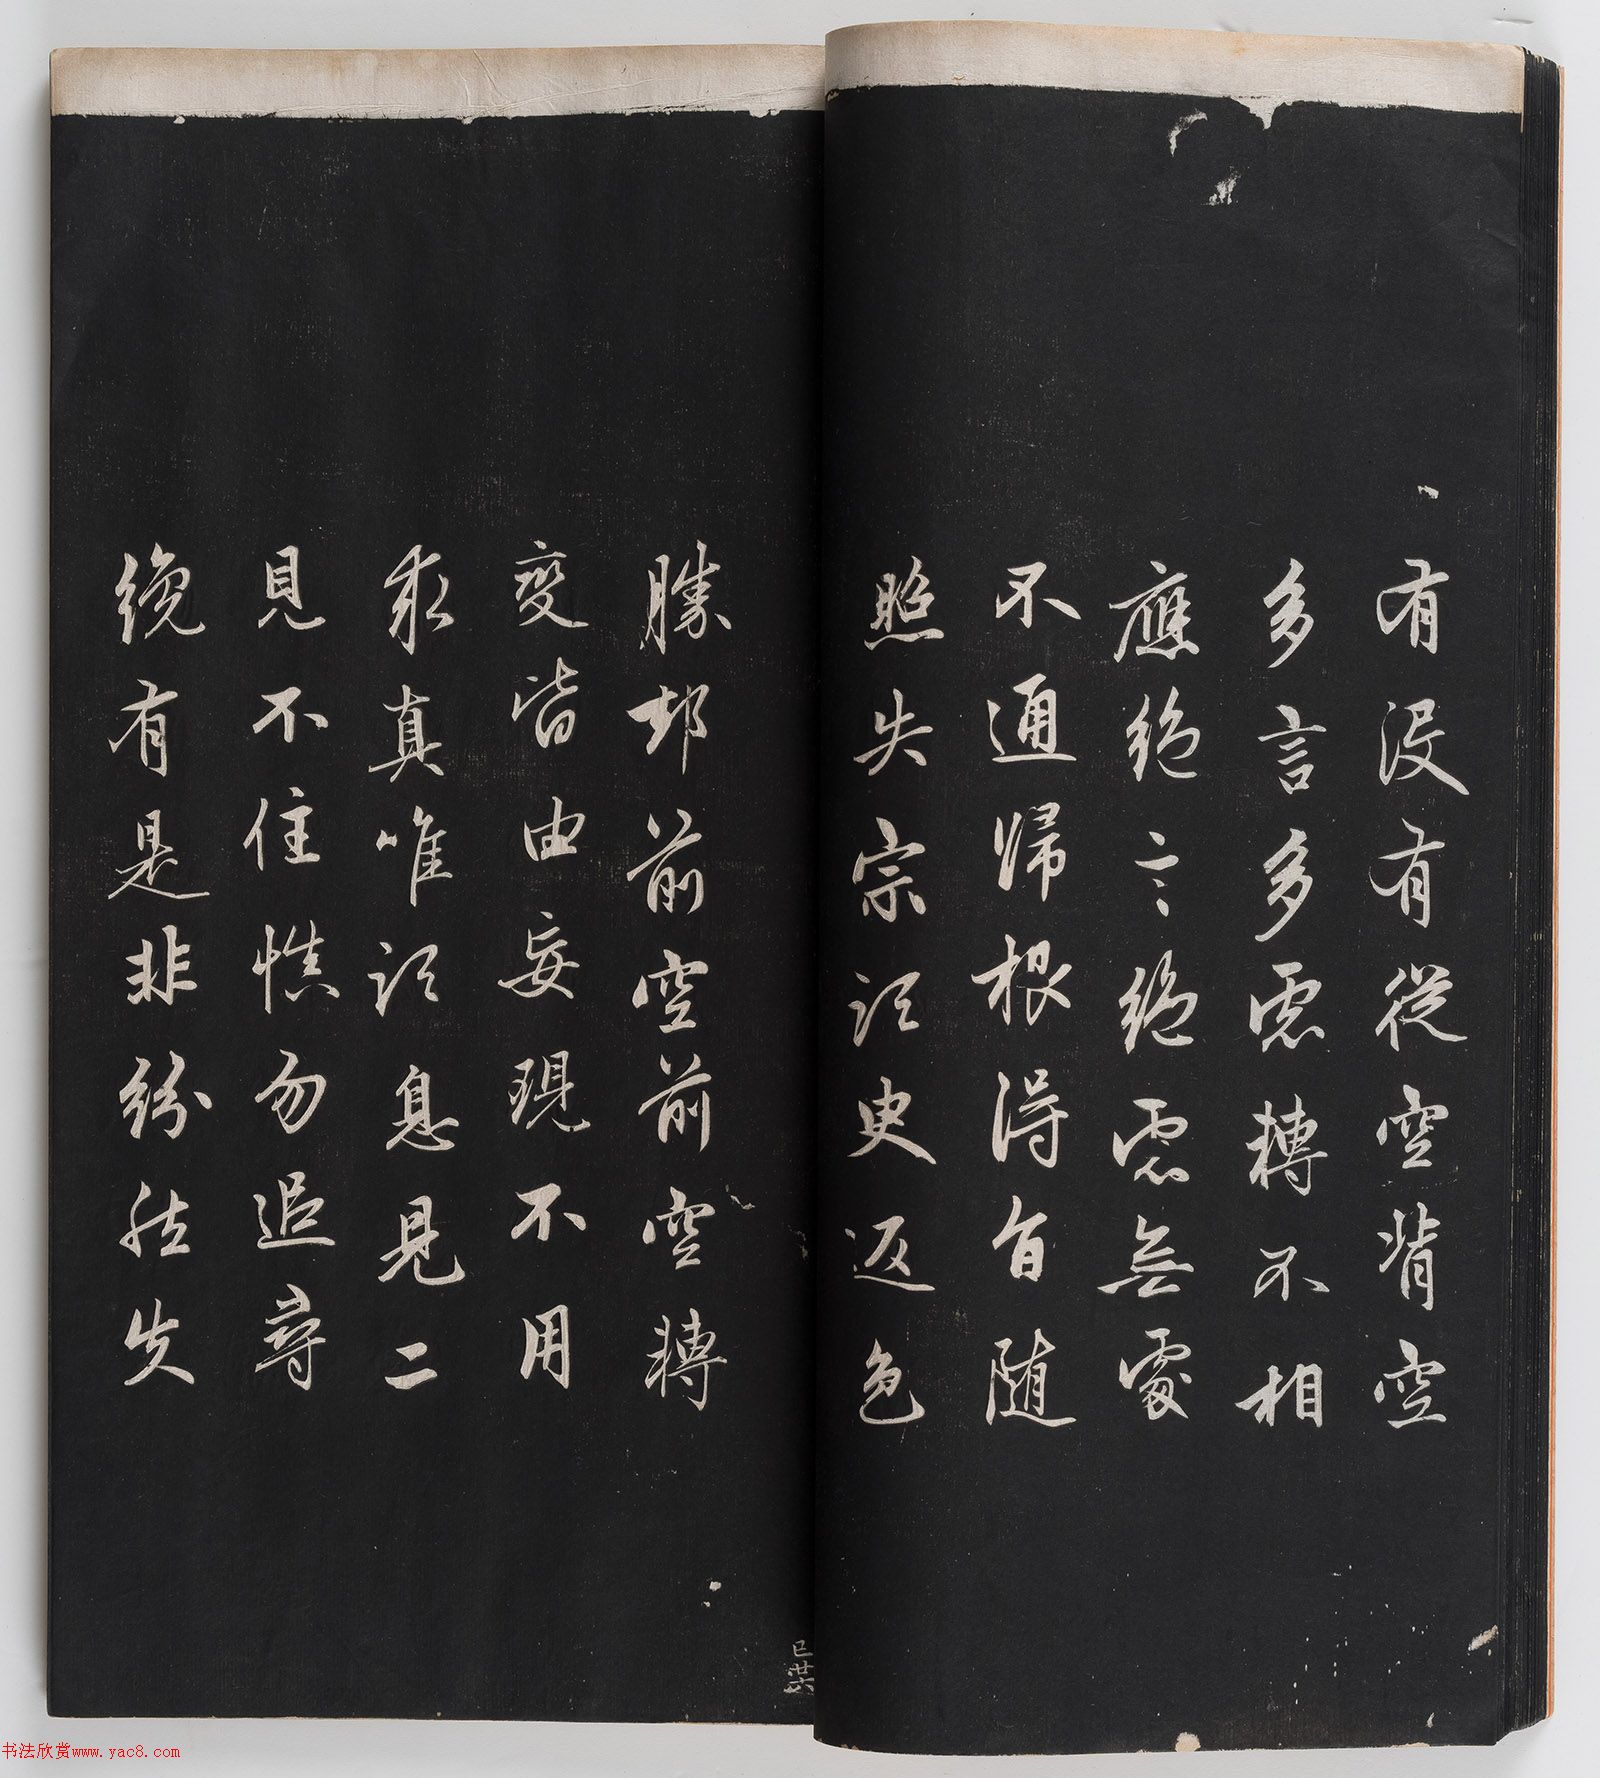 有沒有從空背空
多言多慮轉不相
應絕言絕慮無處
不通歸根得旨隨
照失宗須臾返色
勝却前空前空轉
變皆由妄現不用
求真唯須息見二
見不住慎勿追尋
纔有是非紛然失
已廿六
书法欣赏www.yac8.com